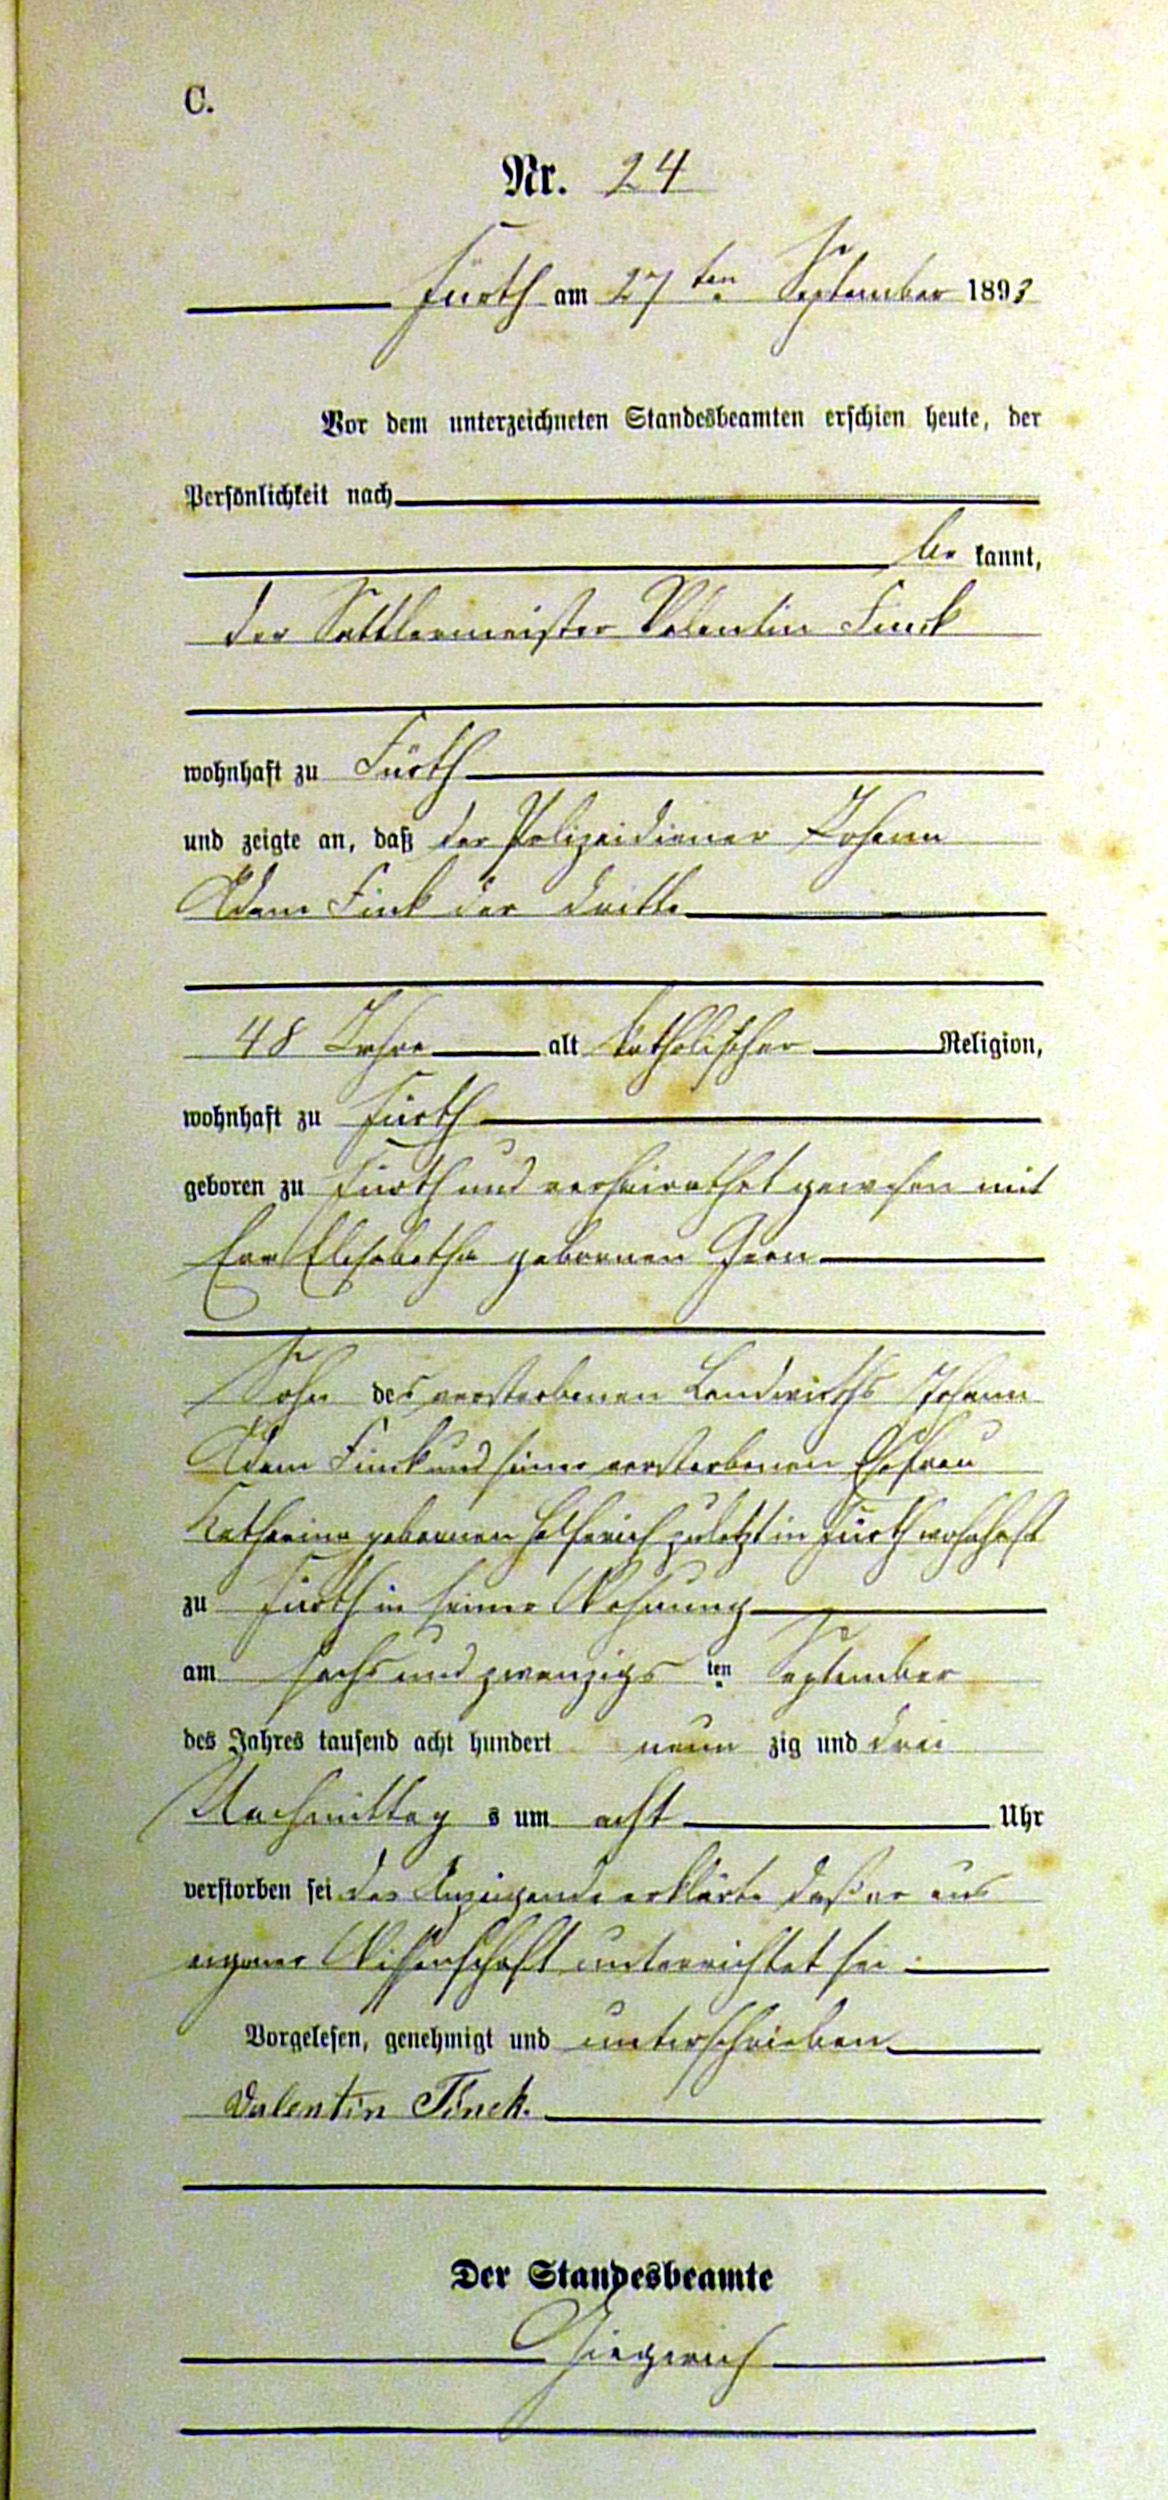 C.
Nr. 24
Fürth am 27ten September 1893
Vor dem unterzeichneten Standesbeamten erschien heute, der
Persönlichkeit nach
be kannt,
der Sattlermeister Valentin Finck
wohnhaft zu Fürth
und zeigte an, daß der Polizeidiener Johann
Adam Fink der dritte
48 Jahre alt katholischer Religion,
wohnhaft zu Fürth
geboren zu Fürth und verheirathet gewesen mit
Eva Elisabetha geborenen
Sohn des verstorbenen Landwirths Johann
Adam Finck und seiner verstorbenen Ehefrau
Katharina geborenen Helferich zuletzt in Fürth wohnhaft
zu Fürth in seiner Wohnung
am sechs und zwanzigs ten September
des Jahres tausend acht hundert neun zig und drei
Nachmittag s um acht Uhr
verstorben sei der Anzeigende erklärte daß er aus
eigener Wissenschaft unterrichtet sei.
Vorgelesen, genehmigt und unterschrieben
Valentin Finck.
Der Standesbeamte